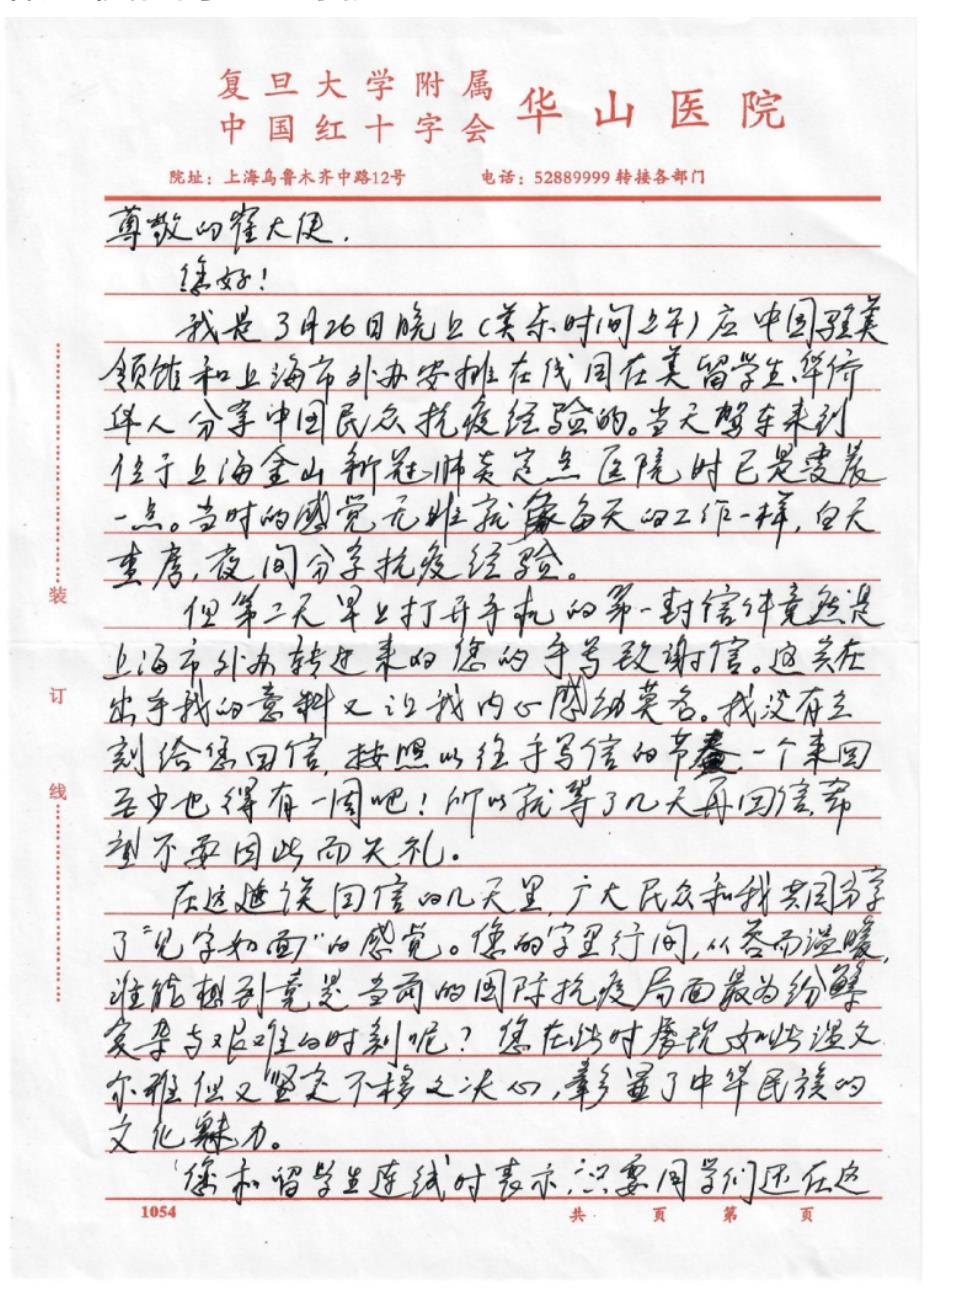 复旦大学附属
中国红十字会
华山医院
院址：上海乌鲁木齐中路12号 电话：52889999 转接各部门
尊敬的崔大使，
您好！
我是3月26日晚上（美东时间上午）应中国驻美
领馆和上海市外办安排在线同在美留学生、华侨
华人分享中国民众抗疫经验的。当天驾车来到
位于上海金山新冠肺炎定点医院时已是凌晨
一点。当时的感觉无非就像每天的工作一样，白天
查房，夜间分享抗疫经验。
但第二天早上打开手机的第一封信件竟然是
上海市外办转过来的您的手写致谢信。这实在
出乎我的意料又让我内心感动莫名。我没有立
刻给您回信，按照以往手写信的节奏一个来回
至少也得有一周吧！所以就等了几天再回信，希
望不要因此而失礼。
在这延误回信的几天里，广大民众和我共同分享
了“见字如面”的感觉。您的字里行间，从容而温暖，
谁能想到竟是当前的国际抗疫局面最为纷繁
复杂与艰难的时刻呢？您在此时展现如此温文
尔雅但又坚定不移之决心，彰显了中华民族的
文化魅力。
您和留学生连线时表示，只要同学们还在这
装
订
线
1054 共 页 第 页